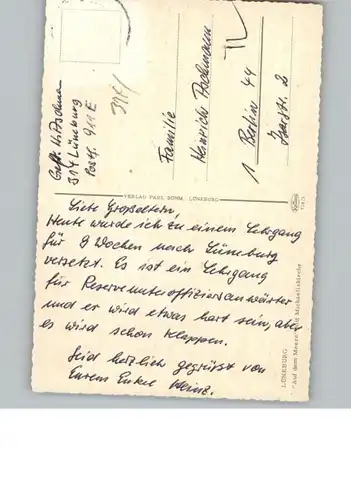 Gefr. H. Prohme
314 Lüneburg
Postf. 911 E
Familie
Heinrich Prohmann
1 Berlin 44
Isarstr. 2
VERLAG PAUL BÖHM, LÜNEBURG
Liebe Großeltern,
Heute wurde ich zu einem Lehrgang
für 9 Wochen nach Lüneburg
versetzt. Es ist ein Lehrgang
für Reserveunteroffiziersanwärter
und er wird etwas hart sein, aber
es wird schon klappen.
Seid herzlich gegrüßt von
Eurem Enkel Heinz.
LÜNEBURG
"Auf dem Meere" mit Michaeliskirche